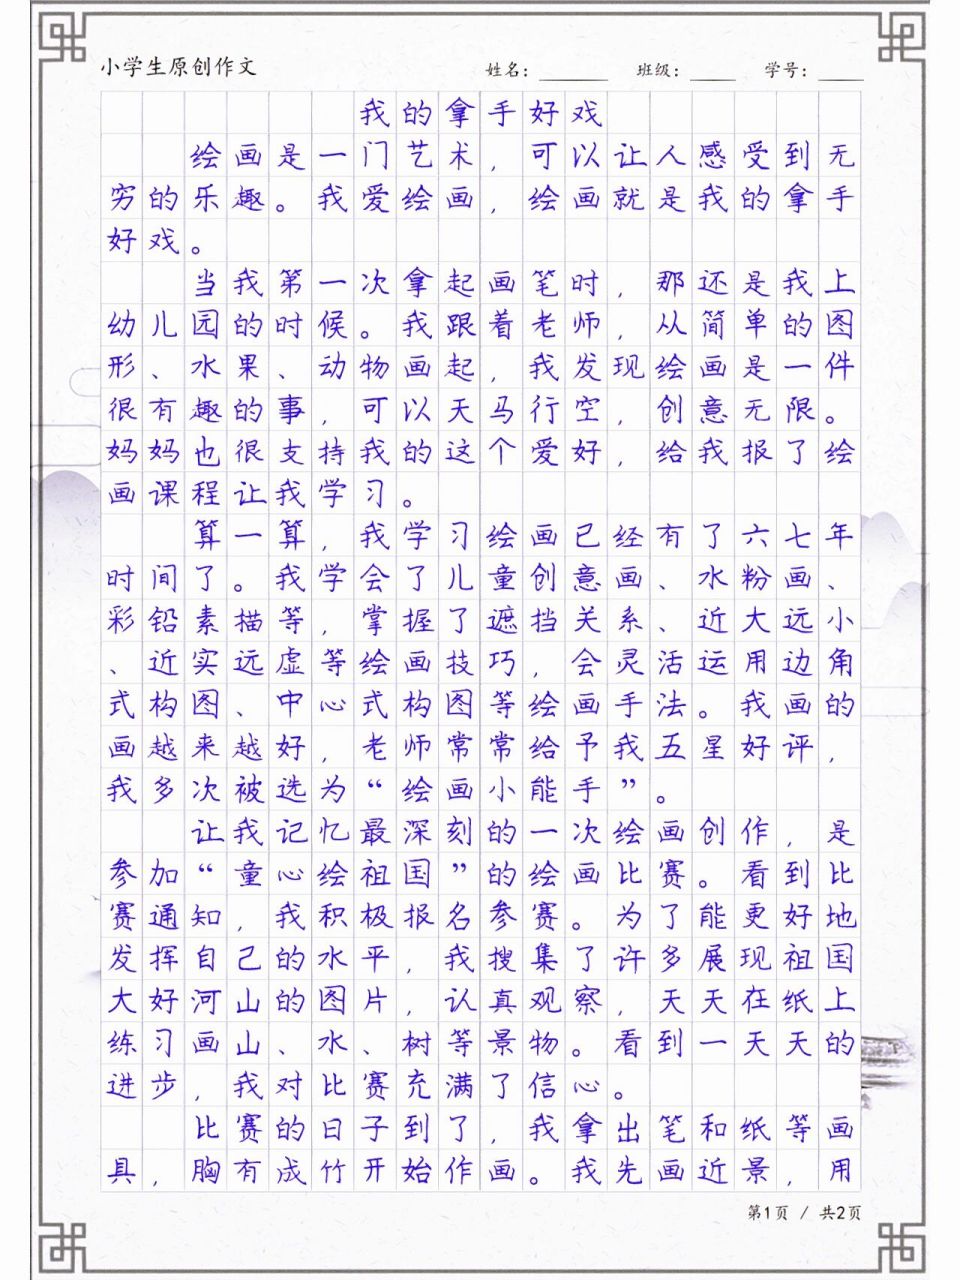 小学生原创作文 姓名：______ 班级：____ 学号：____
我的拿手好戏
绘画是一门艺术，可以让人感受到无
穷的乐趣。我爱绘画，绘画就是我的拿手
好戏。
当我第一次拿起画笔时，那还是我上
幼儿园的时候。我跟着老师，从简单的图
形、水果、动物画起，我发现绘画是一件
很有趣的事，可以天马行空，创意无限。
妈妈也很支持我的这个爱好，给我报了绘
画课程让我学习。
算一算，我学习绘画已经有了六七年
时间了。我学会了儿童创意画、水粉画、
彩铅素描等，掌握了遮挡关系、近大远小
、近实远虚等绘画技巧，会灵活运用边角
式构图、中心式构图等绘画手法。我画的
画越来越好，老师常常给予我五星好评，
我多次被选为“绘画小能手”。
让我记忆最深刻的一次绘画创作，是
参加“童心绘祖国”的绘画比赛。看到比
赛通知，我积极报名参赛。为了能更好地
发挥自己的水平，我搜集了许多展现祖国
大好河山的图片，认真观察，天天在纸上
练习画山、水、树等景物。看到一天天的
进步，我对比赛充满了信心。
比赛的日子到了，我拿出笔和纸等画
具，胸有成竹开始作画。我先画近景，用
第1页 / 共2页